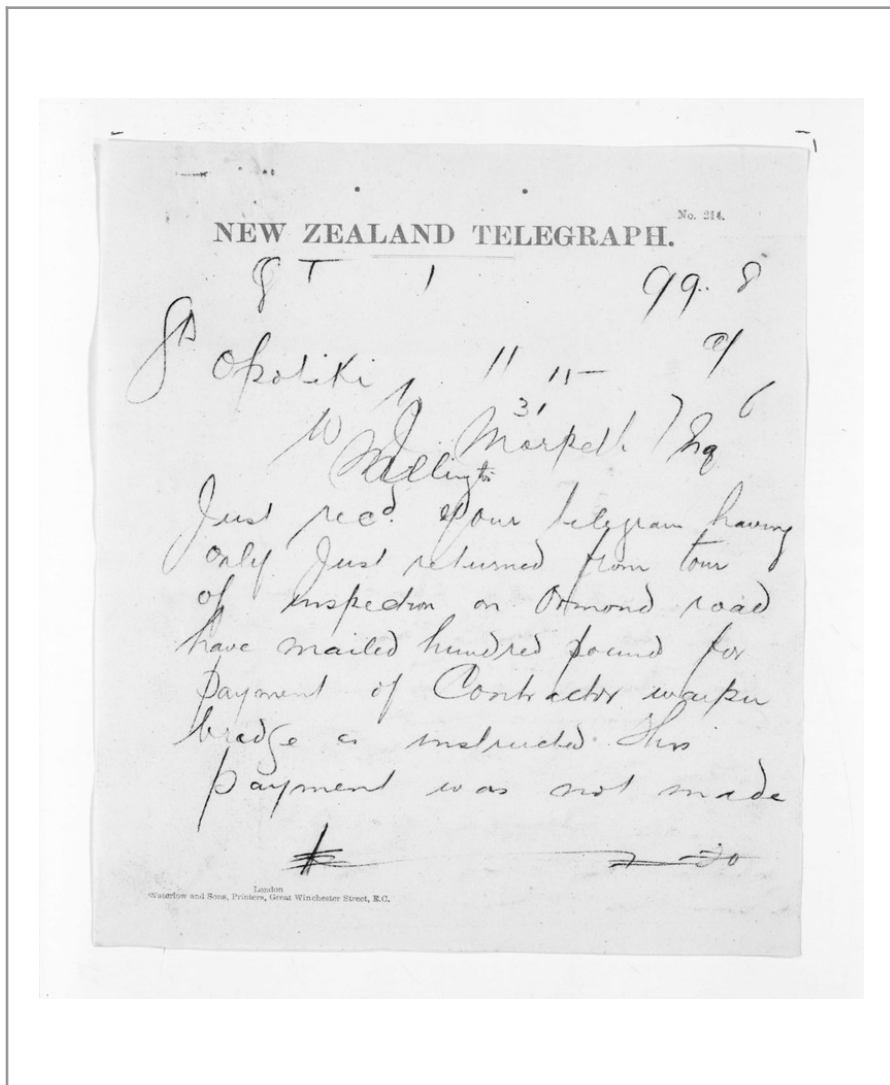 No. 214.
NEW ZEALAND TELEGRAPH.
8 T 1 99. 8
Opotiki 11 11-
31 6
W J Morpeth Esq
Wellington
Just recd. your telegram having
only Just returned from tour
of inspection on Ormond road
have mailed hundred pound for
payment of Contractor
bridge as instructed this
payment was not made
London
Waterlow and Sons, Printers, Great Winchester Street, E.C.